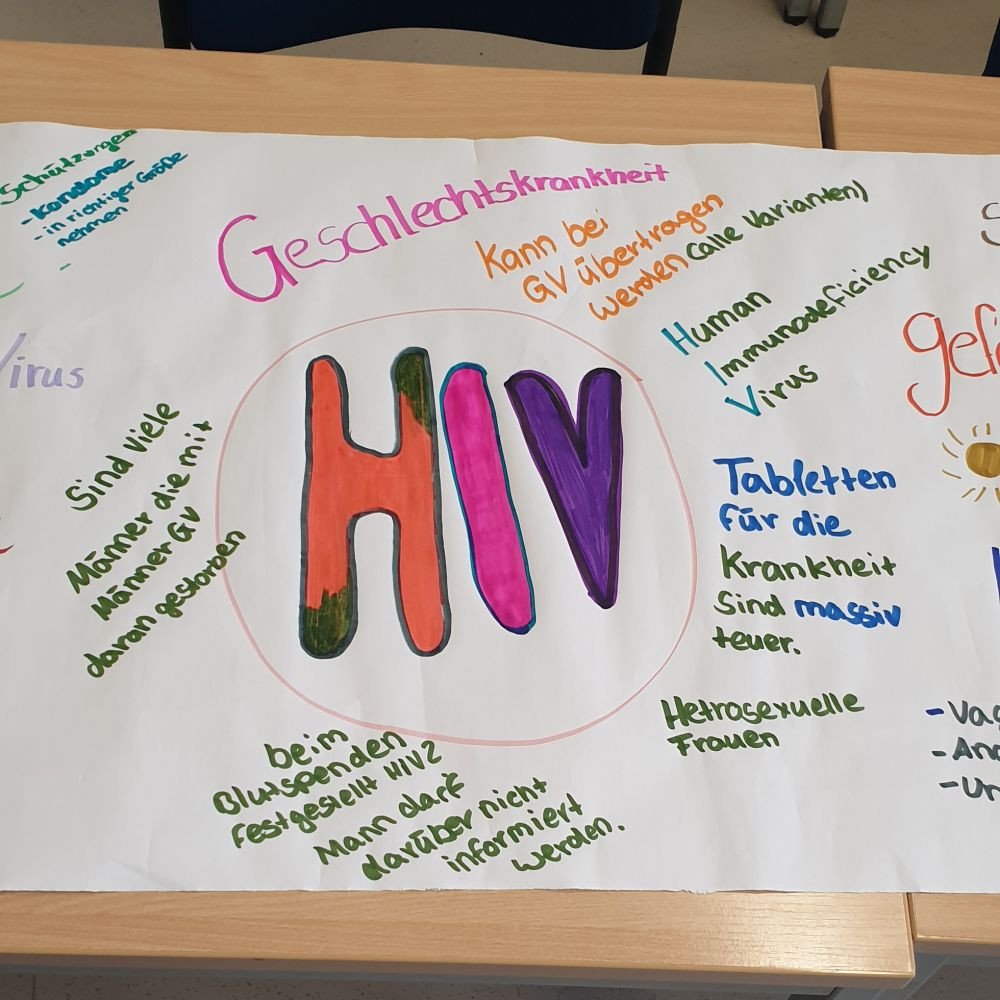 Schützungen
- Kondome
- in richtiger Größe
nehmen
-
Geschlechtskrankheit
Kann bei
GV übertragen
werden (alle Varianten)
Human
Immunodeficiency
Virus
Virus
Sind Viele
Männer die mit
Männer GV
daran gestorben
HIV
Tabletten
für die
Krankheit
Sind massiv
teuer.
Hetrosexuelle
Frauen
beim
Blutspenden
festgestellt HIV2
Mann darf
darüber nicht
informiert
werden.